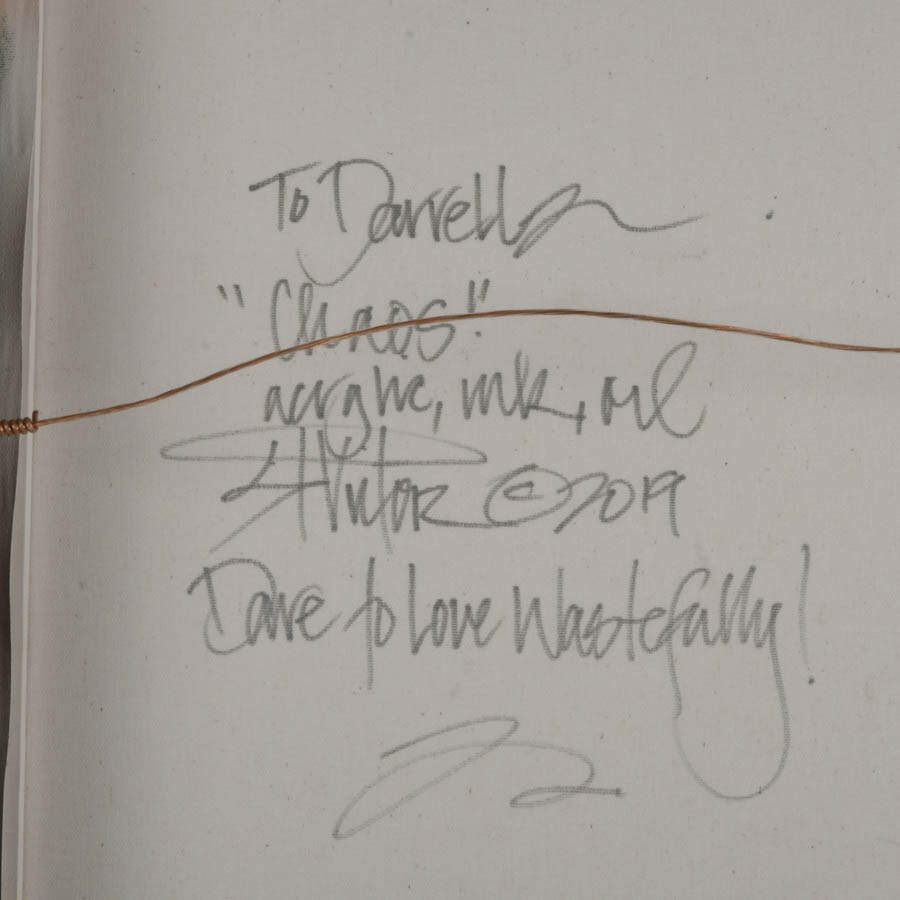 To Darrell
"Chaos"
acrylic, ink, oil
© 2019
Dare to Love Wastefully!